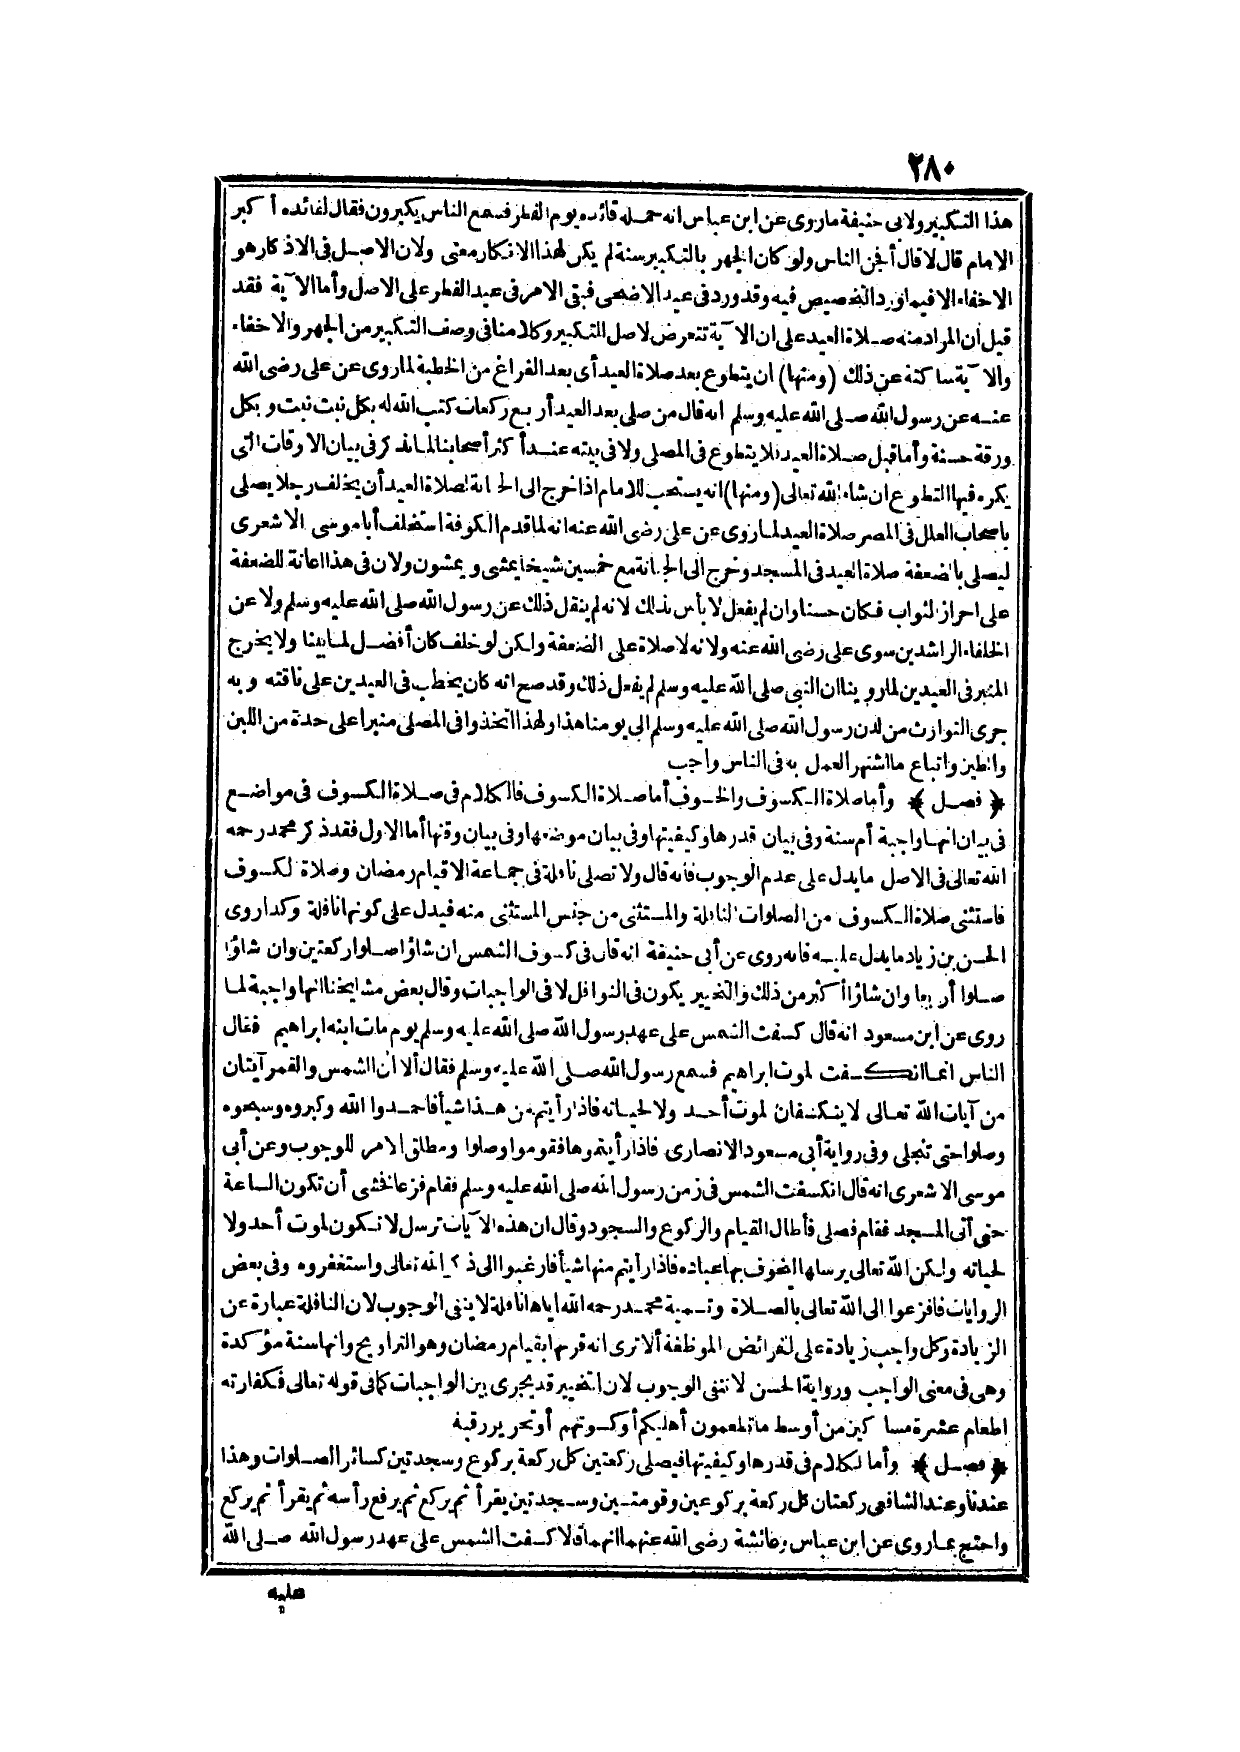 ٢٨٠
هذا التكبير ولابى حنيفة ماروى عن ابن عباس انه حمله قائده يوم الفطر فسمع الناس يكبرون فقال لقائده أكبر
الامام قال لا قال أفجن الناس ولو كان الجهر بالتكبير سنة لم يكن لهذا الانكار معنى ولان الاصل فى الاذكار هو
الاخفاء الا فيما ورد التخصيص فيه وقد ورد فى عيد الاضحى فبقى الامر فى عيد الفطر على الاصل وأما الآية فقد
قيل ان المراد منه صلاة العيد على ان الآية تتعرض لاصل التكبير وكلامنا فى وصف التكبير من الجهر والاخفاء
والآية ساكتة عن ذلك (ومنها) ان يتطوع بعد صلاة العيد أى بعد الفراغ من الخطبة لما روى عن على رضى الله
عنه عن رسول الله صلى الله عليه وسلم انه قال من صلى بعد العيد أربع ركعات كتب الله له بكل نبت نبت وبكل
ورقة حسنة وأما قبل صلاة العيد فلا يتطوع فى المصلى ولا فى بيته عند أكثر أصحابنا لما نذكر فى بيان الاوقات التى
يكره فيها التطوع ان شاء الله تعالى (ومنها) انه يستحب للامام اذا خرج الى الجبانة لصلاة العيد أن يخلف رجلا يصلى
باصحاب العلل فى المصر صلاة العيد لما روى عن على رضى الله عنه انه لما قدم الكوفة استخلف أبا موسى الاشعرى
ليصلى بالضعفة صلاة العيد فى المسجد وخرج الى الجبانة مع خمسين شيخا يمشى ويمشون ولان فى هذا اعانة للضعفة
على احراز الثواب فكان حسنا وان لم يفعل لا بأس بذلك لانه لم ينقل ذلك عن رسول الله صلى الله عليه وسلم ولا عن
الخلفاء الراشدين سوى على رضى الله عنه ولانه لا صلاة على الضعفة ولكن لو خلف كان أفضل لما بينا ولا يخرج
المنبر فى العيدين لما روينا ان النبى صلى الله عليه وسلم لم يفعل ذلك وقد صح انه كان يخطب فى العيدين على ناقته وبه
جرى التوارث من لدن رسول الله صلى الله عليه وسلم الى يومنا هذا ولهذا اتخذوا فى المصلى منبرا على حدة من اللبن
والطين واتباع ما اشتهر العمل به فى الناس واجب
﴿ فصل ﴾ وأما صلاة الكسوف والخسوف أما صلاة الكسوف فالكلام فى صلاة الكسوف فى مواضع
فى بيان انها واجبة أم سنة وفى بيان قدرها وكيفيتها وفى بيان موضعها وفى بيان وقتها أما الاول فقد ذكر محمد رحمه
الله تعالى فى الاصل ما يدل على عدم الوجوب فانه قال ولا تصلى نافلة فى جماعة الا قيام رمضان وصلاة الكسوف
فاستثنى صلاة الكسوف من الصلوات النافلة والمستثنى من جنس المستثنى منه فيدل على كونها نافلة وكذا روى
الحسن بن زياد ما يدل عليه فانه روى عن أبى حنيفة انه قال فى كسوف الشمس ان شاؤا صلوا ركعتين وان شاؤا
صلوا أربعا وان شاؤا أكثر من ذلك والتخيير يكون فى النوافل لا فى الواجبات وقال بعض مشايخنا انها واجبة لما
روى عن ابن مسعود انه قال كسفت الشمس على عهد رسول الله صلى الله عليه وسلم يوم مات ابنه ابراهيم فقال
الناس انما انكسفت لموت ابراهيم فسمع رسول الله صلى الله عليه وسلم فقال ألا ان الشمس والقمر آيتان
من آيات الله تعالى لا ينكسفان لموت أحد ولا لحياته فاذا رأيتم من هذا شيأ فاحمدوا الله وكبروه وسبحوه
وصلوا حتى تنجلى وفى رواية أبى مسعود الانصارى فاذا رأيتموها فقوموا وصلوا ومطلق الامر للوجوب وعن أبى
موسى الاشعرى انه قال انكسفت الشمس فى زمن رسول الله صلى الله عليه وسلم فقام فزعا فخشى أن تكون الساعة
حتى أتى المسجد فقام فصلى فأطال القيام والركوع والسجود وقال ان هذه الآيات ترسل لا تكون لموت أحد ولا
لحياته ولكن الله تعالى يرسلها ليخوف بها عباده فاذا رأيتم منها شيأ فارغبوا الى ذكر الله تعالى واستغفروه وفى بعض
الروايات فافزعوا الى الله تعالى بالصلاة وتسمية محمد رحمه الله اياها نافلة لا ينفى الوجوب لان النافلة عبارة عن
الزيادة وكل واجب زيادة على الفرائض الموظفة ألا ترى انه قرنها بقيام رمضان وهو التراويح وانها سنة مؤكدة
وهى فى معنى الواجب ورواية الحسن لا تنفى الوجوب لان التخيير قد يجرى بين الواجبات كما فى قوله تعالى فكفارته
اطعام عشرة مساكين من أوسط ما تطعمون أهليكم أو كسوتهم أو تحرير رقبة
﴿ فصل ﴾ وأما الكلام فى قدرها وكيفيتها فيصلى ركعتين كل ركعة بركوع وسجدتين كسائر الصلوات وهذا
عندنا وعند الشافعى ركعتان كل ركعة بركوعين وقومتين وسجدتين يقرأ ثم يركع ثم يرفع رأسه ثم يقرأ ثم يركع
واحتج بما روى عن ابن عباس وعائشة رضى الله عنهما انهما قالا كسفت الشمس على عهد رسول الله صلى الله
عليه